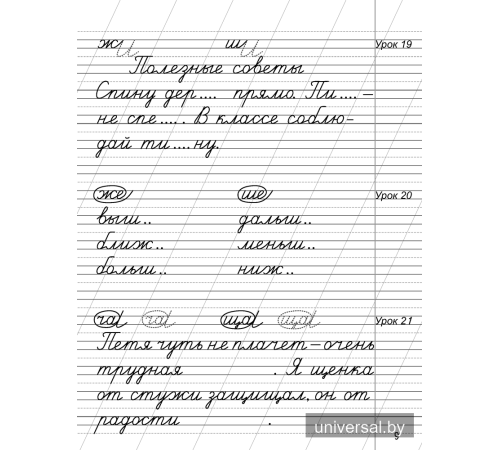 жи ши Урок 19
Полезные советы
Спину дер.... прямо. Пи.... –
не спе..... В классе соблю-
дай ти....ну.
же ше Урок 20
выш.. дальш..
ближ.. меньш..
больш.. ниж..
ча ча ща ща Урок 21
Петя чуть не плачет – очень
трудная . Я щенка
от стужи защищал, он от
радости .
universal.by
5